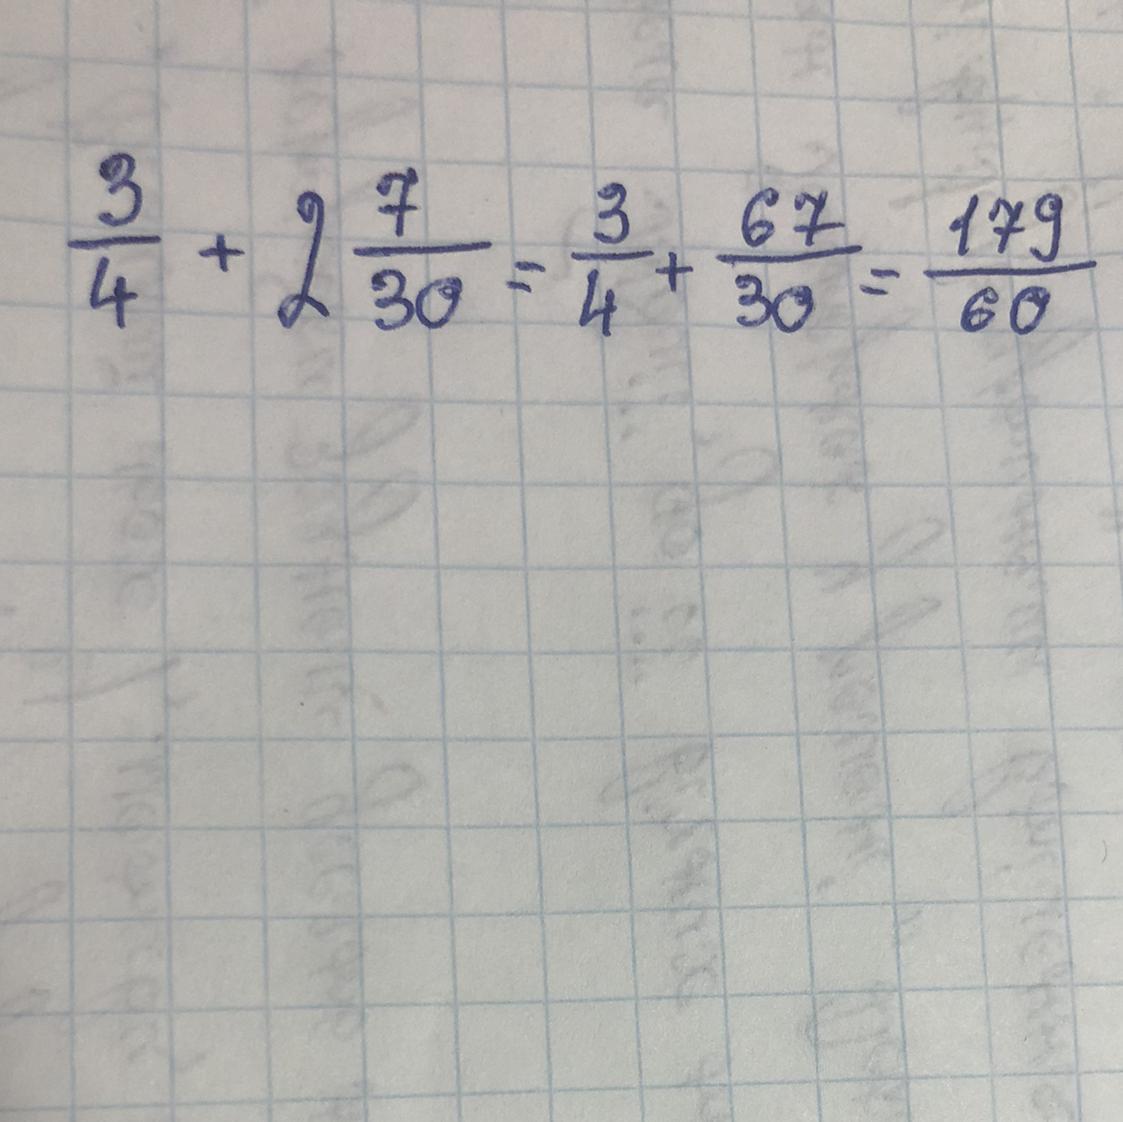 3/4 + 2 7/30 = 3/4 + 67/30 = 179/60